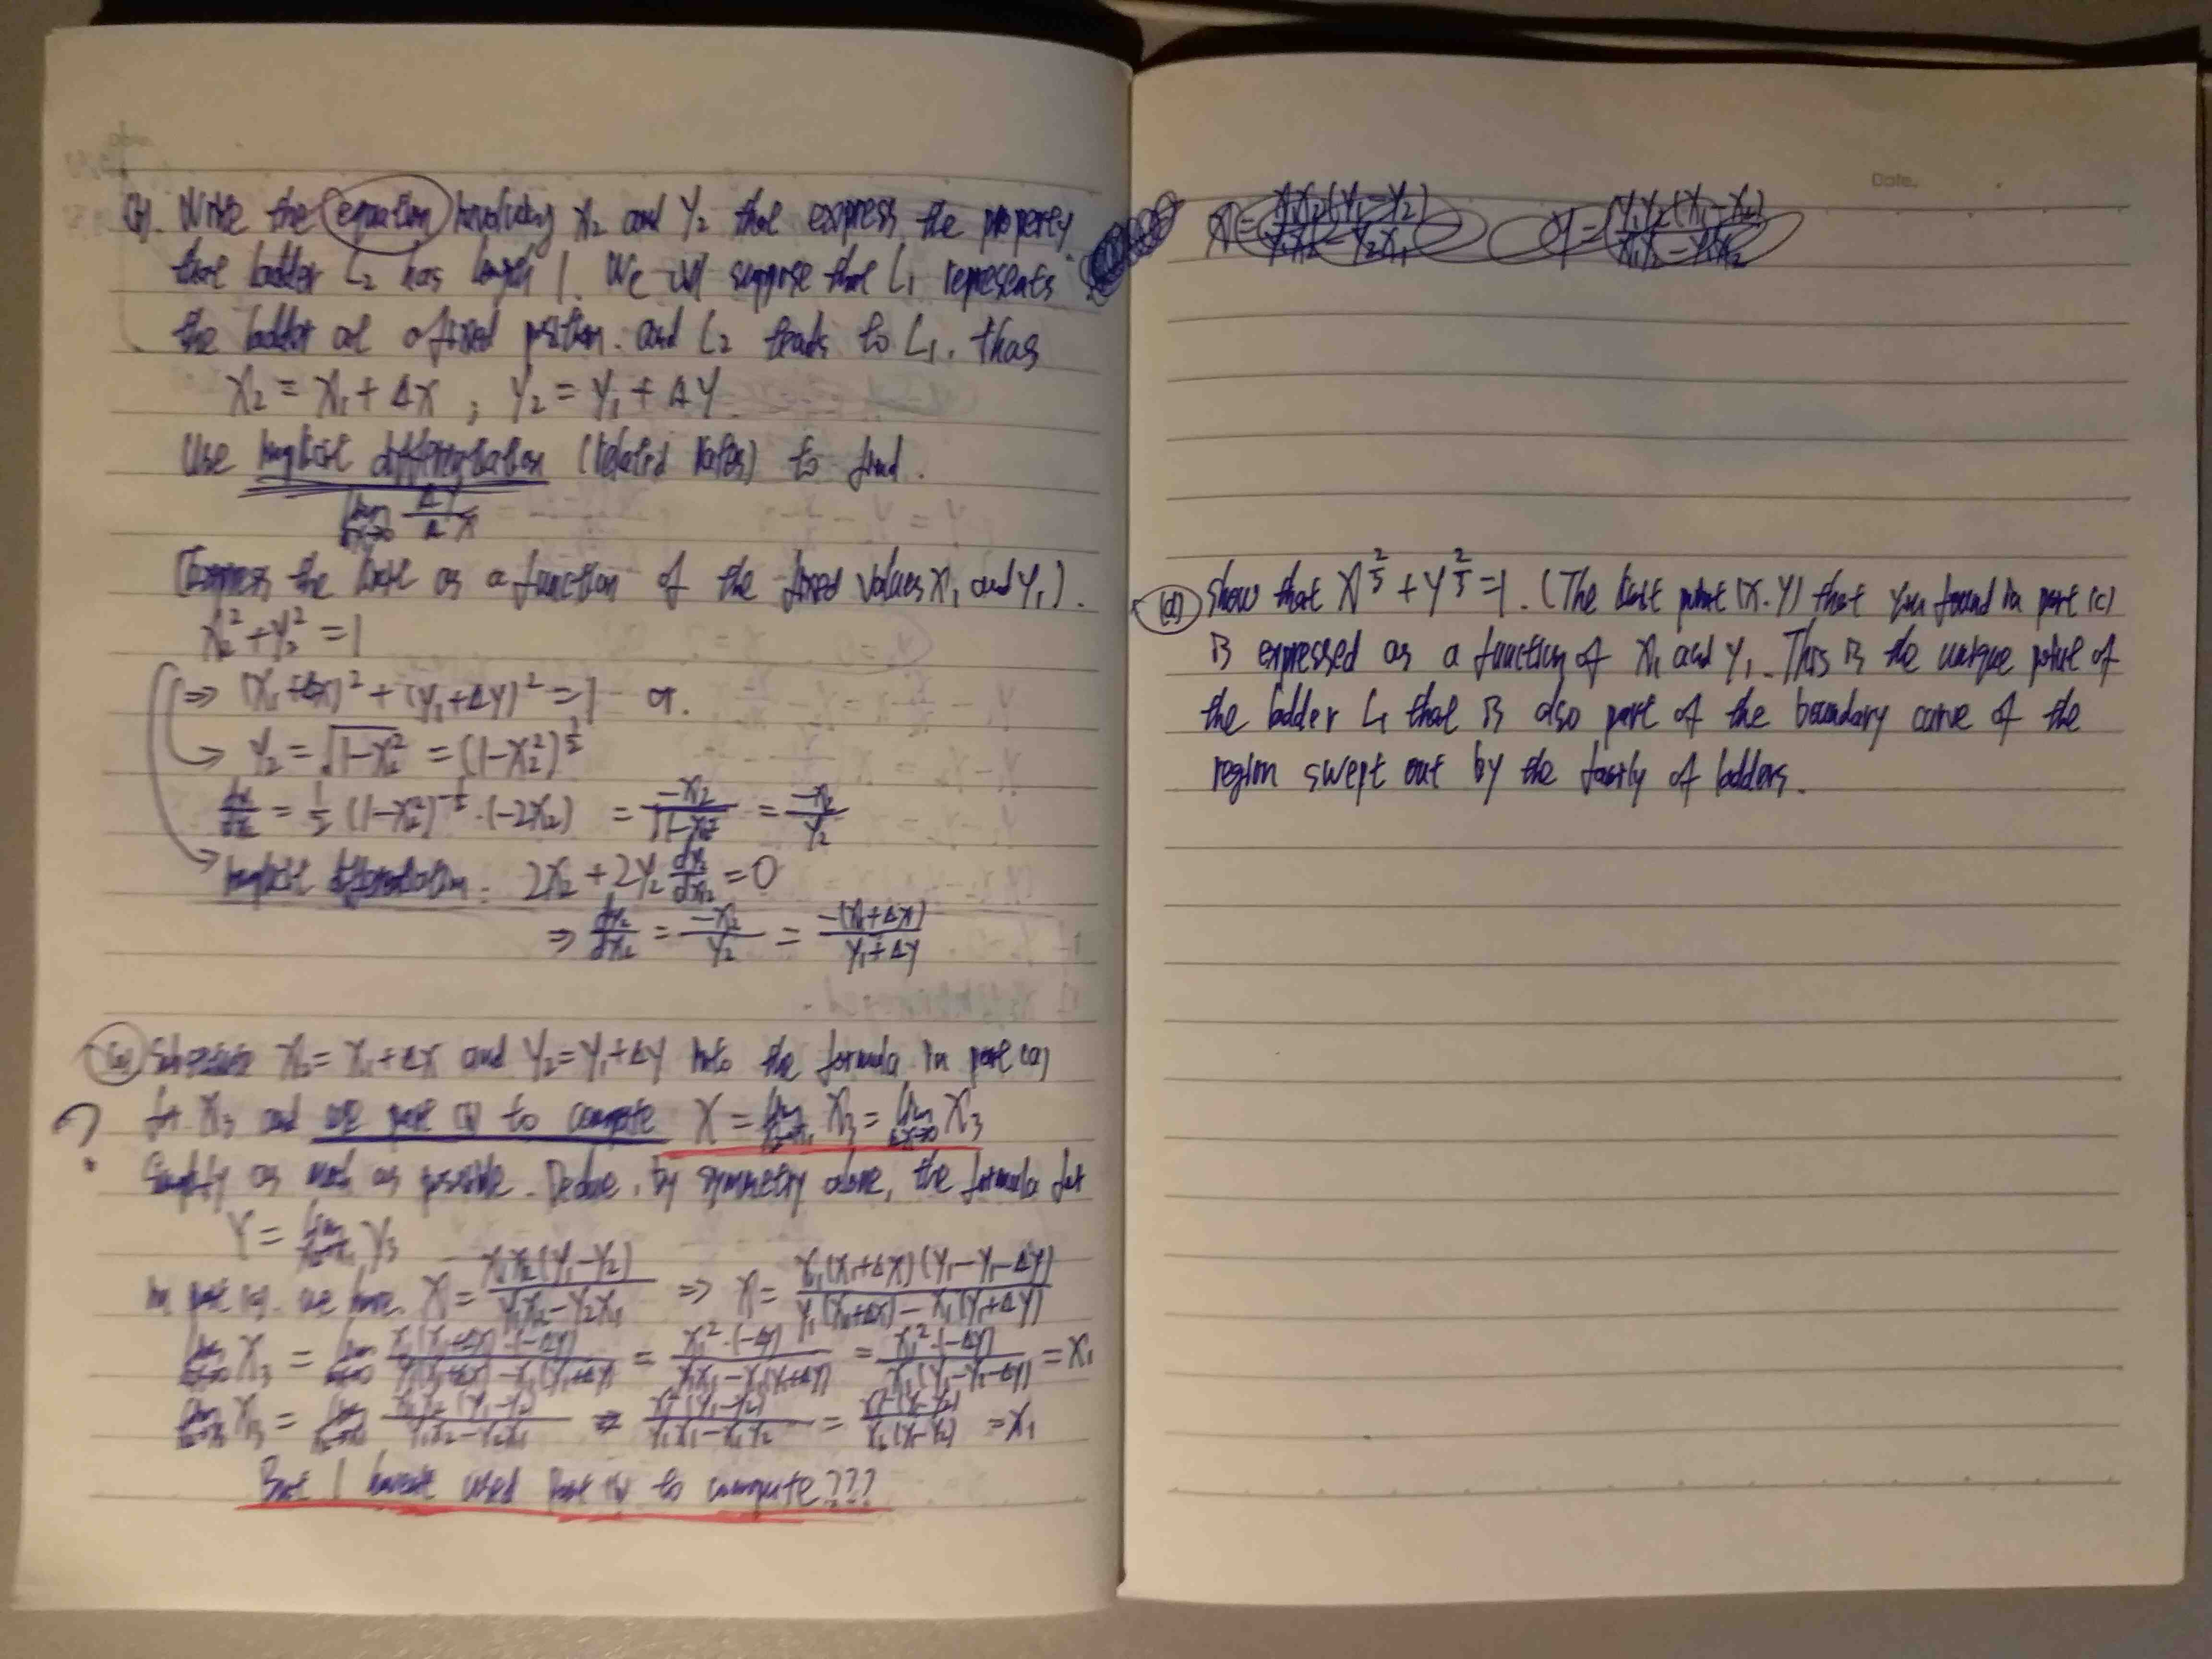 (b). Write the equation involving X₂ and Y₂ that express the property
that ladder L₂ has length 1. We will suppose that L₁ represents
the ladder at a fixed position. and L₂ tends to L₁. thus
X₂ = X₁ + ΔX , Y₂ = Y₁ + ΔY
Use implicit differentiation (related rates) to find.
lim ΔX→0 ΔY/ΔX
(Express the limit as a function of the fixed values X₁ and Y₁).
X₂² + Y₂² = 1
⇒ (X₁+ΔX)² + (Y₁+ΔY)² = 1 or.
→ Y₂ = √(1-X₂²) = (1-X₂²)^(1/2)
= 1/2 (1-X₂²)^(-1/2) · (-2X₂) = -X₂/√(1-X₂²) = -X₂/Y₂
→ implicit differentiation. 2X₂ + 2Y₂ dY₂/dX₂ = 0
⇒ dY₂/dX₂ = -X₂/Y₂ = -(X₁+ΔX)/(Y₁+ΔY)
(c) Substitute X₂ = X₁ + ΔX and Y₂ = Y₁ + ΔY into the formula in part (a)
? for X₃ and use part (b) to compute X = lim X₂→X₁ X₃ = lim ΔX→0 X₃
Simplify as much as possible. Deduce, by symmetry alone, the formula for
Y = lim X₂→X₁ Y₃
In part (a). we have. X = X₁X₂(Y₁-Y₂)/(Y₁X₂-Y₂X₁) ⇒ X = X₁(X₁+ΔX)(Y₁-Y₁-ΔY)/(Y₁(X₁+ΔX)-X₁(Y₁+ΔY))
lim ΔX→0 X₃ = lim ΔX→0 X₁(X₁+ΔX)·(-ΔY)/(Y₁(X₁+ΔX)-X₁(Y₁+ΔY)) = X₁²·(-ΔY)/(Y₁X₁-X₁(Y₁+ΔY)) = X₁²·(-ΔY)/(X₁(Y₁-Y₁-ΔY)) = X₁
lim X₂→X₁ X₃ = lim X₂→X₁ X₁X₂(Y₁-Y₂)/(Y₁X₂-Y₂X₁) = X₁²(Y₁-Y₂)/(Y₁X₁-X₁Y₂) = = X₁
But I havent used Part (b) to compute???
Date.
(d) Show that X^(2/3) + Y^(2/3) = 1. (The limit point (X.Y) that you found in part (c)
is expressed as a function of X₁ and Y₁. This is the unique point of
the ladder L₁ that is also part of the boundary curve of the
region swept out by the family of ladders.